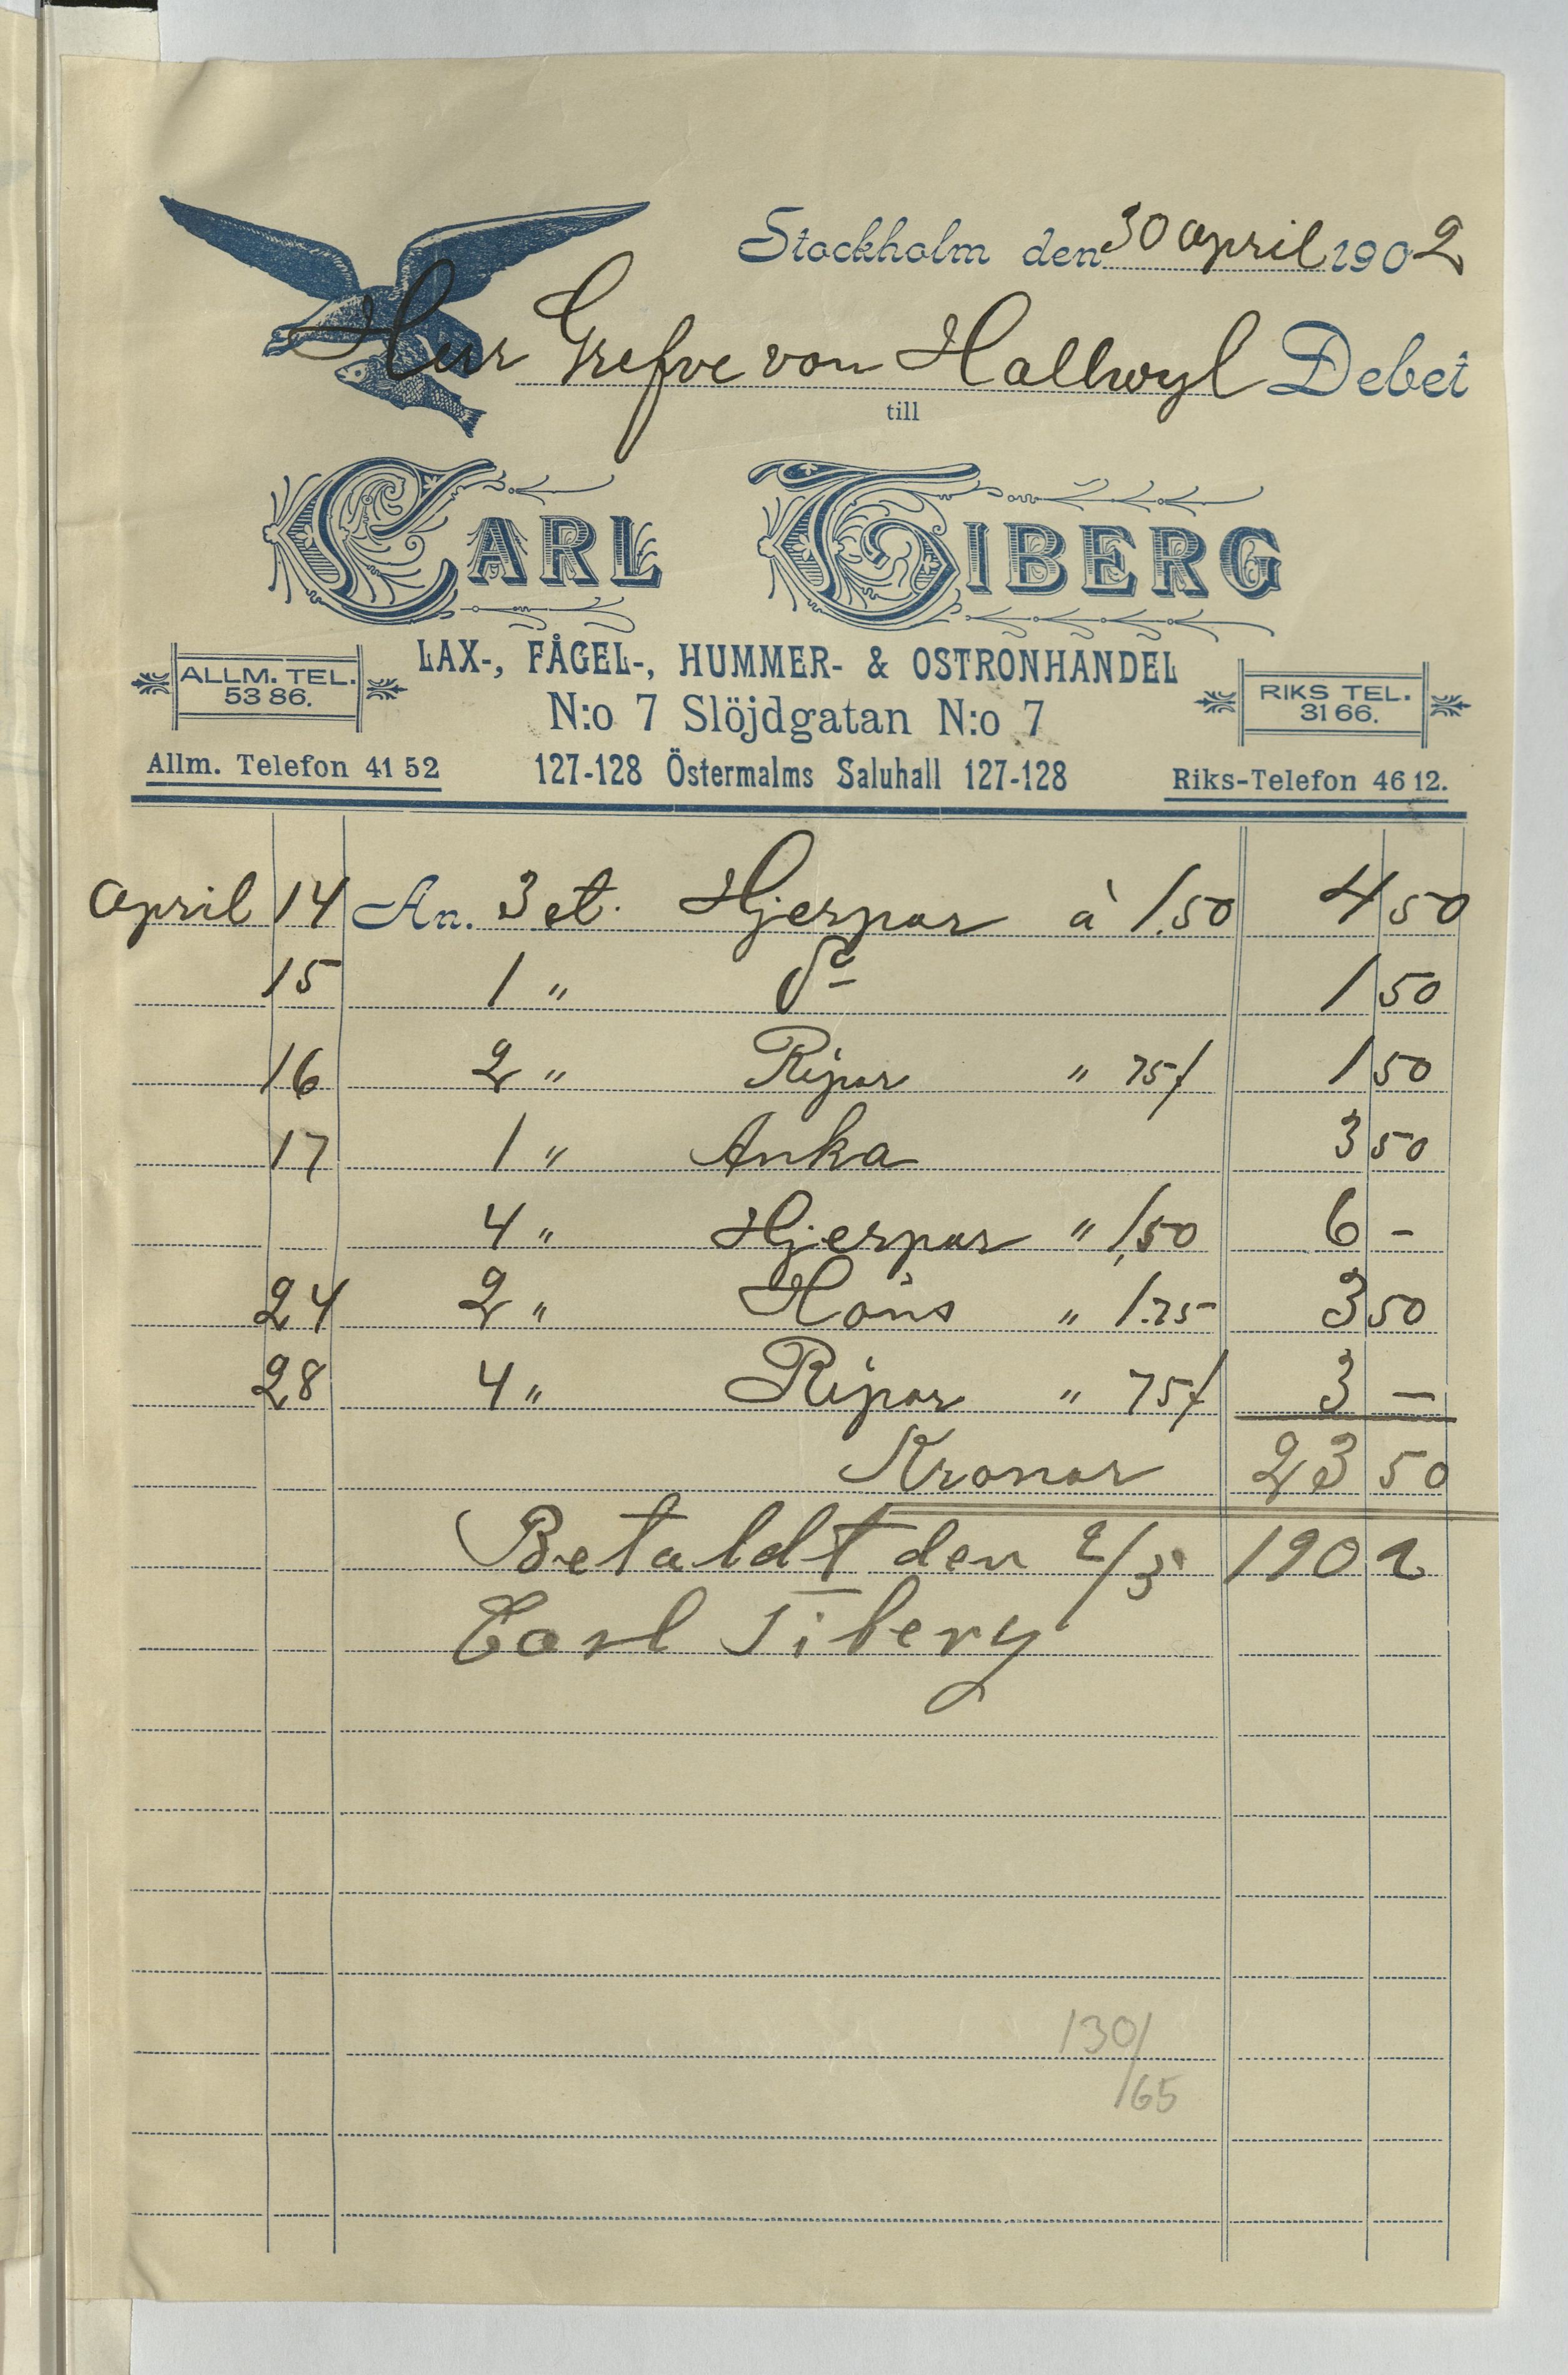 Stockholm den 30 april 1902
Herr Grefve von Hallwyl Debet
till
CARL TIBERG
LAX-, FÅGEL-, HUMMER- & OSTRONHANDEL
ALLM. TEL. 53 86.
N:o 7 Slöjdgatan N:o 7
RIKS TEL. 31 66.
Allm. Telefon 41 52 127-128 Östermalms Saluhall 127-128 Riks-Telefon 46 12.
april 14 An. 3 st. Hjerpar à 1.50 4 50
15 1 " do 1 50
16 2 " Ripor " 75 1 50
17 1 " Anka 3 50
4 " Hjerpar " 1,50 6 -
24 2 " Höns " 1.75 3 50
28 4 " Ripor " 75 3 -
Kronor 23 50
Betaldt den 2/5 1902
Carl Tiberg
130/
/65